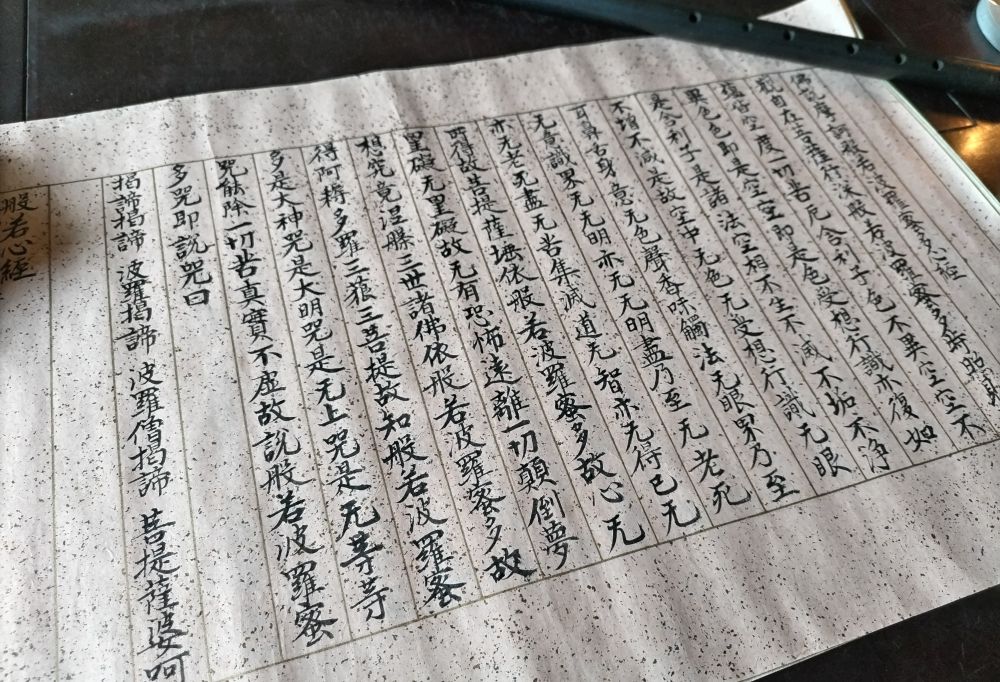 佛說摩訶般若波羅蜜多心經
觀自在菩薩行深般若波羅蜜多時照見
蘊皆空度一切苦厄舍利子色不異空空不
異色色即是空空即是色受想行識亦復如
是舍利子是諸法空相不生不滅不垢不淨
不增不減是故空中无色无受想行識无眼
耳鼻舌身意无色聲香味觸法无眼界乃至
无意識界无无明亦无无明盡乃至无老死
亦无老无盡无苦集滅道无智亦无得已无
所得故菩提薩埵依般若波羅蜜多故心无
罣礙无罣礙故无有恐怖遠離一切顛倒夢
想究竟涅槃三世諸佛依般若波羅蜜多故
得阿耨多羅三藐三菩提故知般若波羅蜜
多是大神咒是大明咒是无上咒是无等等
咒能除一切苦真實不虛故說般若波羅蜜
多咒即說咒曰
揭諦揭諦 波羅揭諦 波羅僧揭諦 菩提薩婆呵
般若心經